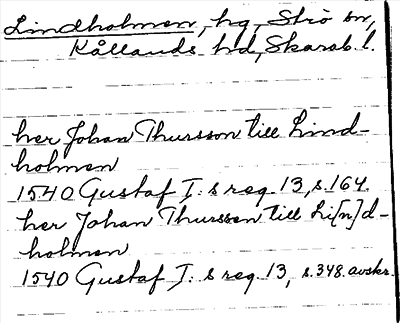 Lindholmen, hg, Strö sn,
Kållands hd, Skarab. l.
her Johan Thursson till Lind-
holmen
1540 Gustaf I:s reg. 13, s. 164.
her Johan Thursson till Li[n]d-
holmen
1540 Gustaf I:s reg. 13, s. 348. avskr.